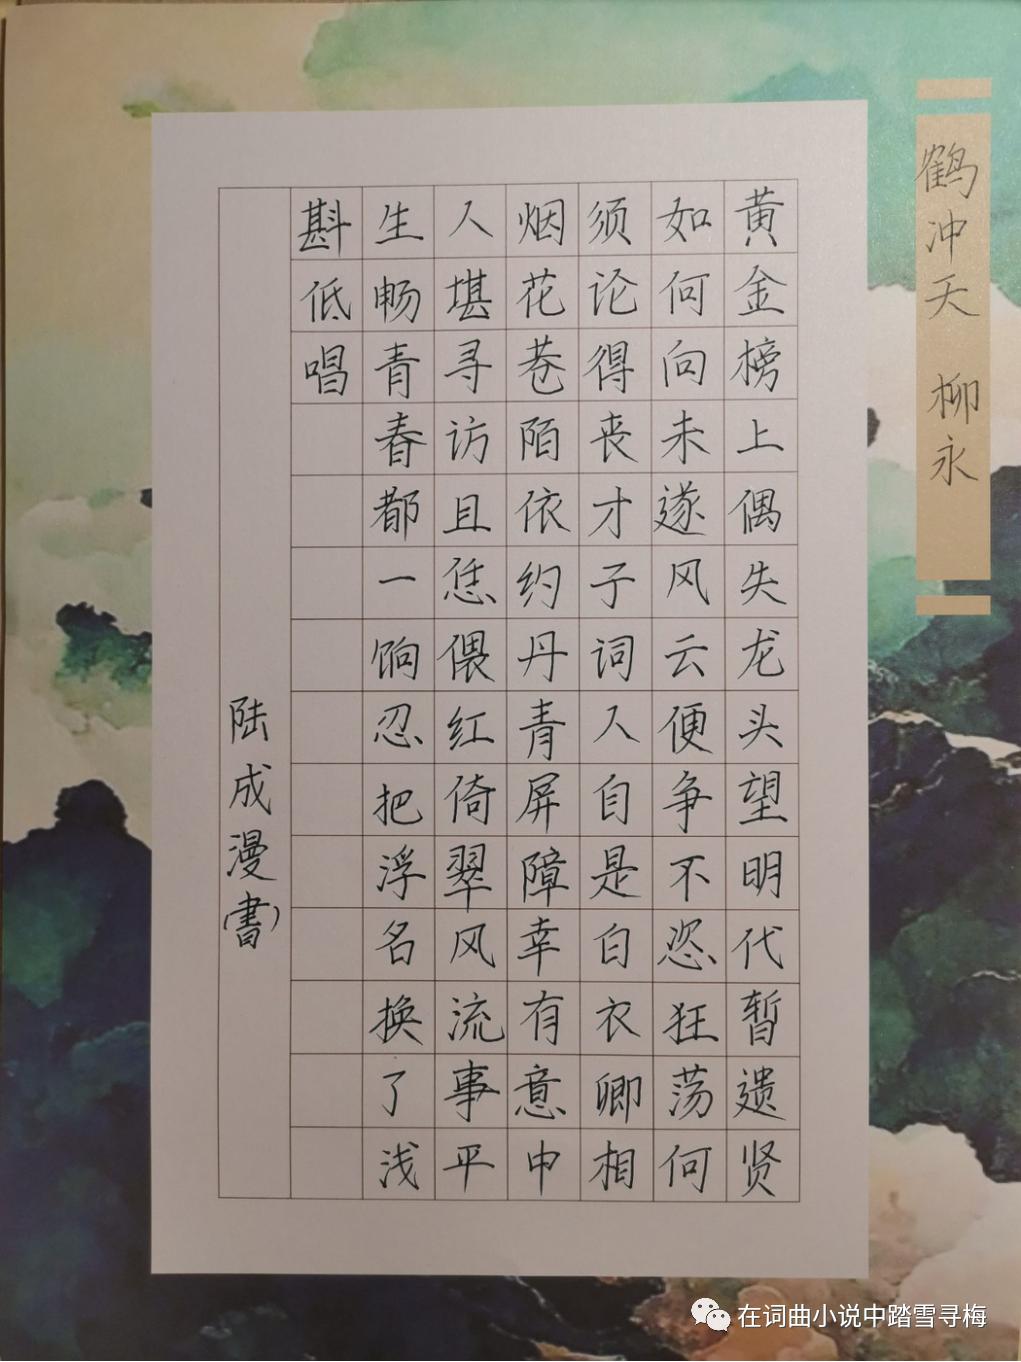 鹤冲天 柳永
黄金榜上偶失龙头望明代暂遗贤
如何向未遂风云便争不恣狂荡何
须论得丧才子词人自是白衣卿相
烟花巷陌依约丹青屏障幸有意中
人堪寻访且恁偎红倚翠风流事平
生畅青春都一饷忍把浮名换了浅
斟低唱
陆成漫書
在词曲小说中踏雪寻梅